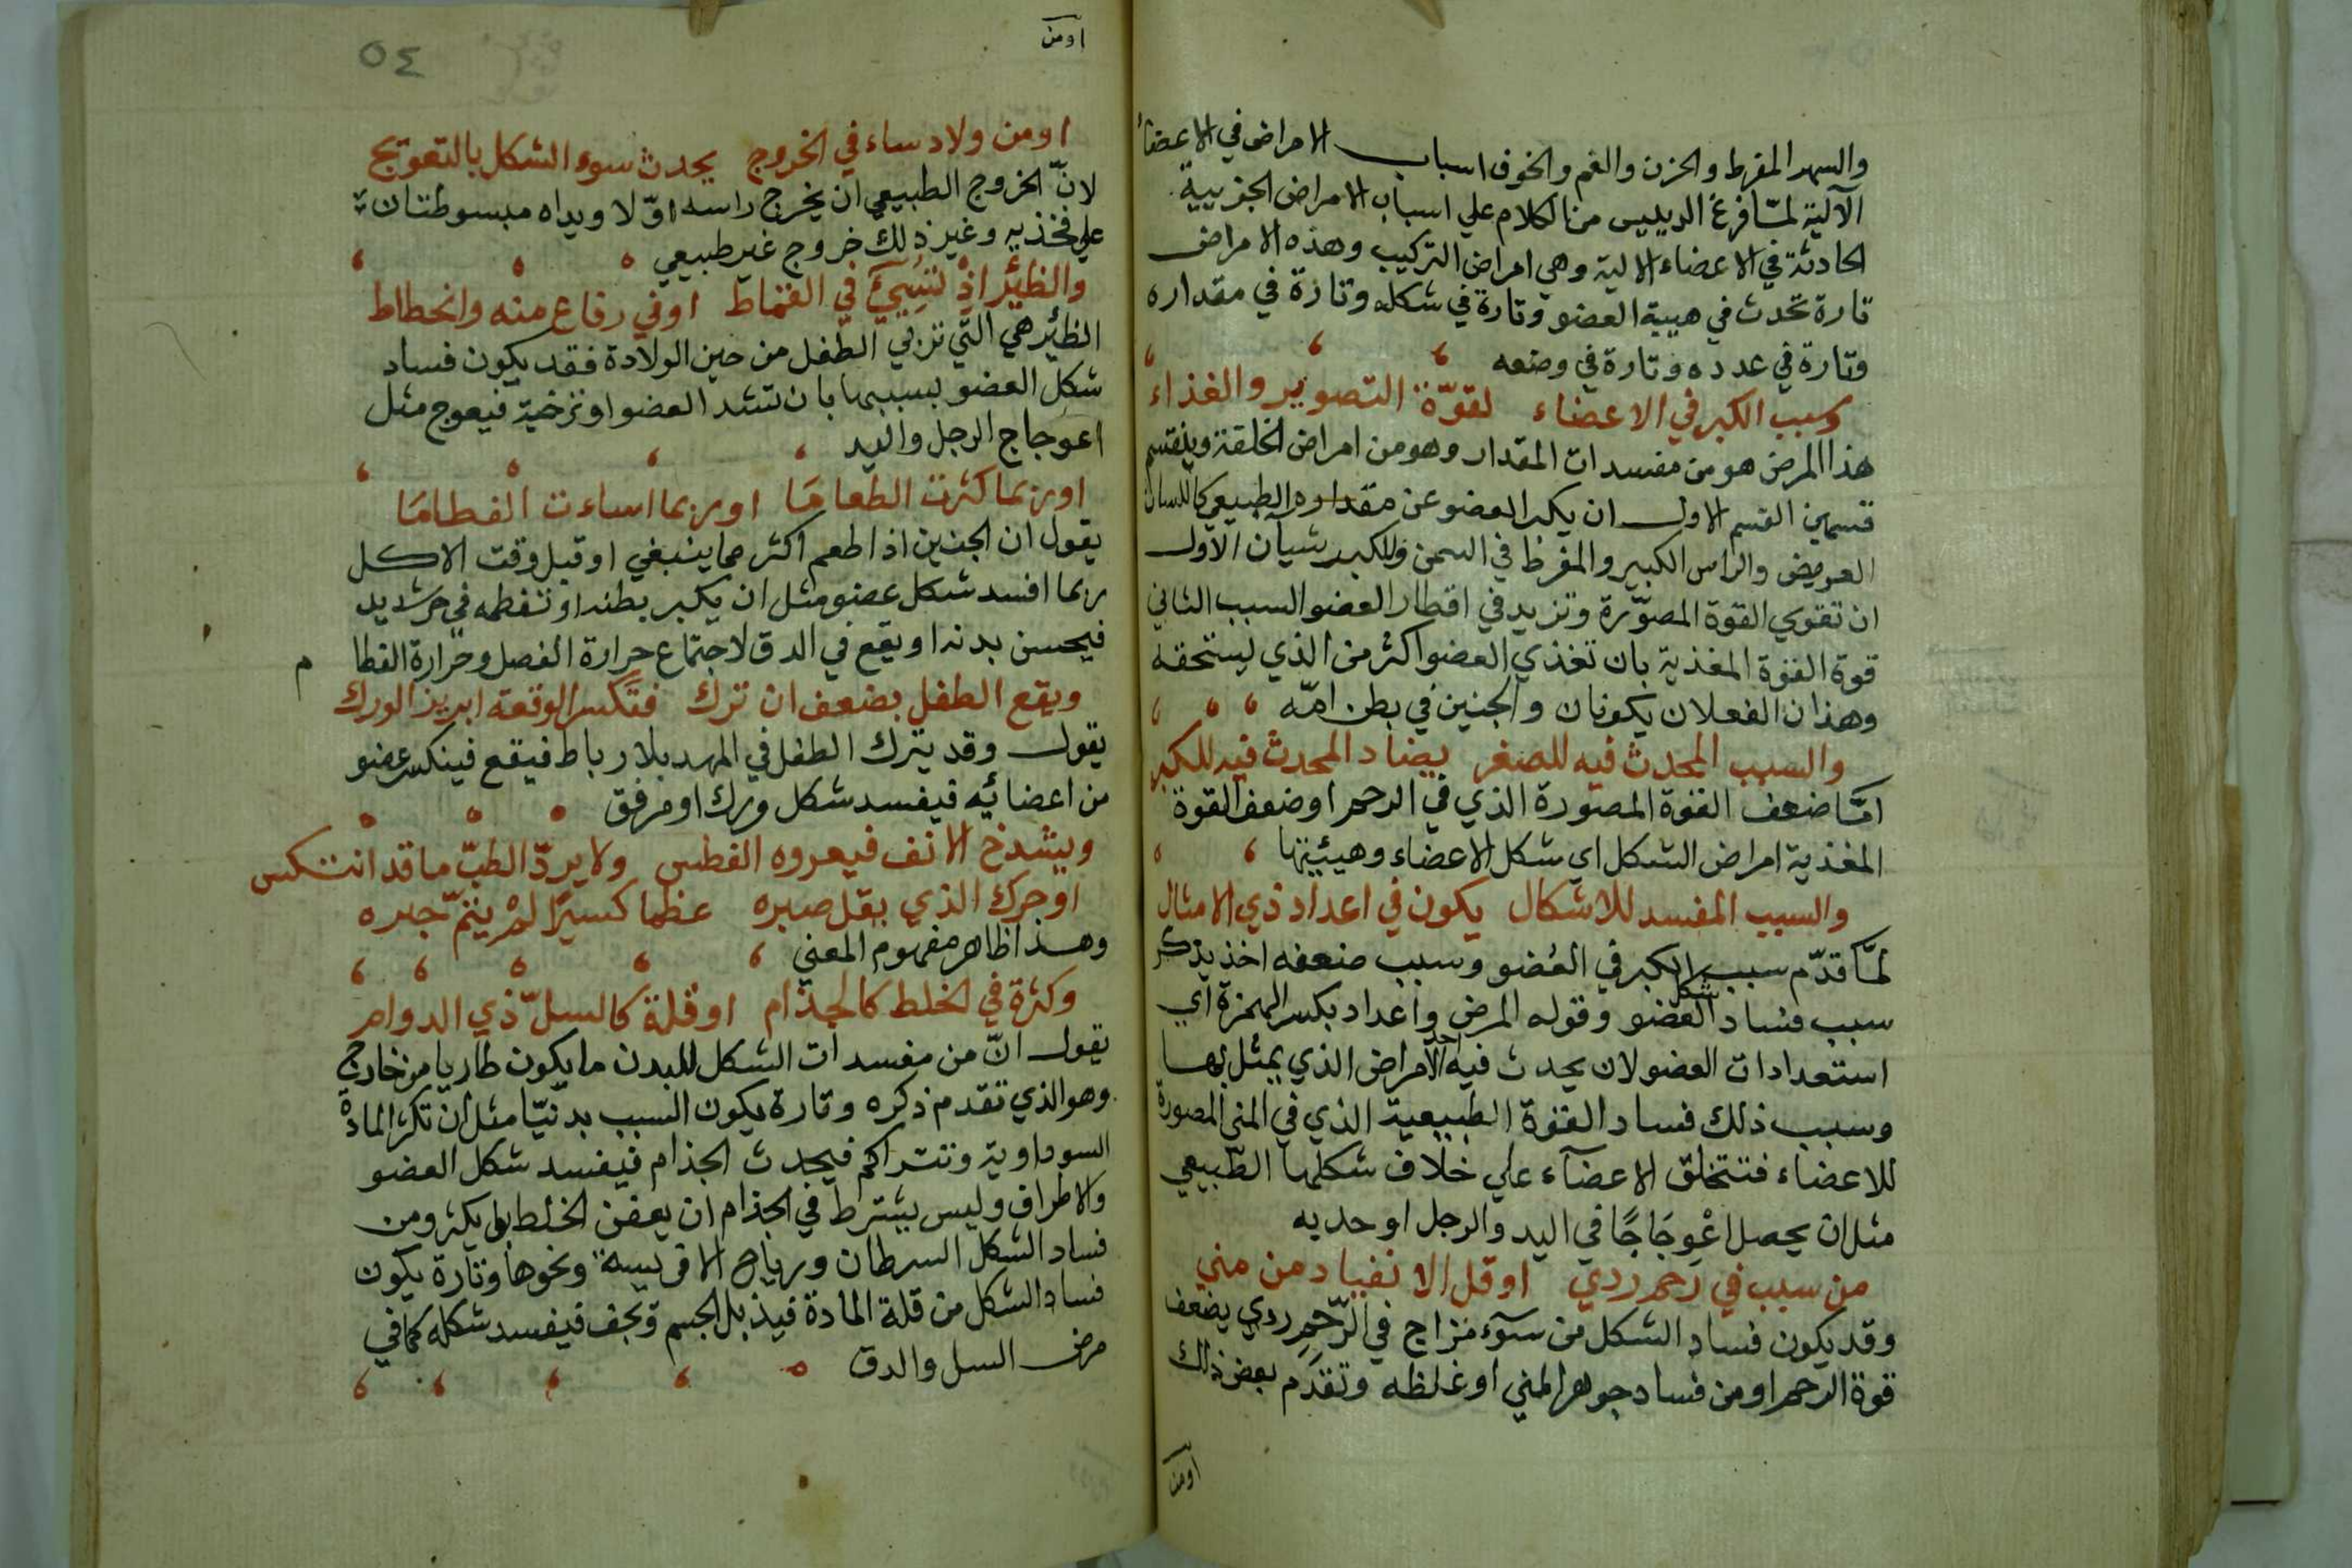 والسهر المفرط والحزن والغم والخوف اسباب الامراض في الاعضاء
الآلية لمّا فرغ الرييس من الكلام علي اسباب الامراض الجزييية
الحادثة في الاعضاء الالية وهي امراض التركيب وهذه الامراض
تارة تحدث في هيية العضو وتارة في شكله وتارة في مقداره
وتارة في عدده وتارة في وضعه
وسبب الكبر في الاعضاء لقوّة التصوير والغذاء
هذا المرض هو من مفسدات المقدار وهو من امراض الخلقة وينقسم
قسمين القسم الاول ان يكبر العضو عن مقداره الطبيعي كاللسان
العريض والراس الكبير والمفرط في السمن وللكبر شيآن الاول
ان تقوي القوة المصوّرة وتزيد في اقطار العضو السبب الثاني
قوة القوة المغذية بان تغذي العضو اكثر من الذي يستحقه
وهذان الفعلان يكونان والجنين في بطن امّه
والسبب المحدث فيه للصغر يضاد المحدث فيه للكبر
امّا ضعف القوة المصورة الذي في الرحم او ضعف القوة
المغذية امراض الشكل اي شكل الاعضاء وهيئيتها
والسبب المفسد للاشكال يكون في اعداد ذي الامثال
لمّا قدّم سبب الكبر في العُضو وسبب ضعفه اخذ يذكر
سبب فساد شكل العضو وقوله المرض واعداد بكسر الهمزة اي
استعدادات العضو لان يحدث فيه احد الامراض الذي يمثل بها
وسبب ذلك فساد القوة الطبيعية الذي في المني المصورة
للاعضاء فتتخلق الاعضآء علي خلاف شكلها الطّبيعي
مثل ان يحصل اعْوِجَاجًا في اليد والرجل او حدبه
من سبب في رَحم ردي او قل الانقياد من مني
وقد يكون فساد الشكل من سوٓء مزاج في الرّحِم ردي يضعف
قوة الرحم او من فساد جوهر المني او غلظه وتقدّم بعض ذلك
اومن
اومن
٥٤
اومن ولاد ساء في الخروج يحدث سوء الشكل بالتعويج
لانّ الخروج الطبيعي ان يخرج راسه اوّلا ويداه مبسوطتان
علي فخذيه وغير ذلك خروج غير طبيعي
والظيْر اذْ تُسِيئُ في القماط او في رفاع منه وانحطاط
الظئر هي التّي تربي الطّفل من حين الولادة فقد يكون فساد
شكل العضو بسببها بان تشد العضو او ترخيه فيعوج مثل
اعوجاج الرجل واليد
او ربما كثرت الطعامَا او ربما اساءت الفطامَا
يقول ان الجنين اذا طعم اكثر مما ينبغي او قبل وقت الاكل
ربما افسد شكل عضو مثل ان يكبر بطنه او تفطمه في حر شديد
فيحسن بدنه او يقع في الدق لاجتماع حرارة الفصل وحرارة الفطام
ويقع الطفل بضعف ان ترك فتكسر الوقعة ابريز الورك
يقول وقد يترك الطفل في المهد بلا رباط فيقع فينكسر عضو
من اعضائه فيفسد شكل ورك او مرفق
ويشدخ الانف فيعروه الفطس ولا يردّ الطبّ ما قد انتكس
او حرك الذي يقل صبره عظما كسيرًا لمْ يتمّ جبره
وهذا ظاهر مفهوم المعني
وكثرة في الخلط كالجذام او قلة كالسلّ ذي الدوام
يقول انّ من مفسدات الشكل للبدن ما يكون طاريا من خارج
وهو الذي تقدم ذكره وتارة يكون السبب بدنيّا مثل ان تكثر المادة
السوداوية وتتراكم فيحدث الجذام فيفسد شكل العضو
والاطراف وليس يشترط في الجذام ان يعفن الخلط بل يكثر ومن
فساد الشكل السرطان ورياح الافريسه ونحوها وتارة يكون
فساد الشكل من قلة المادة فيذبل الجسم ويجف فيفسد شكله كما في
مرض السل والدق